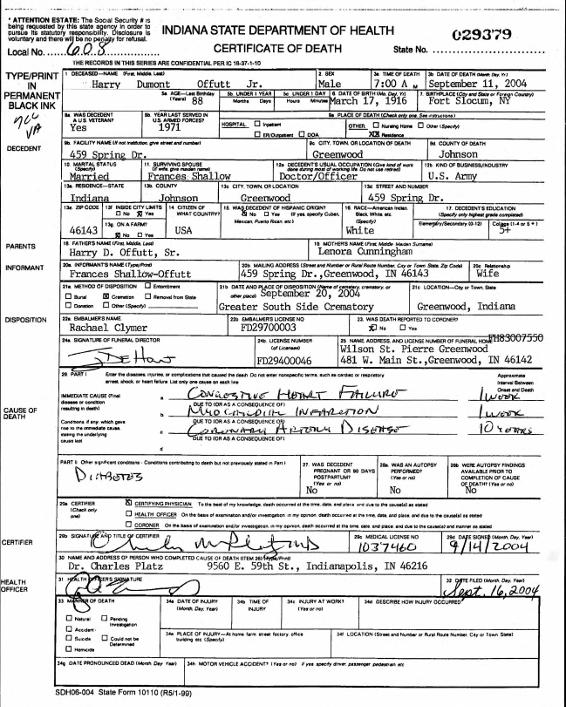 * ATTENTION ESTATE: The Social Security # is
being requested by this state agency in order to
pursue its statutory responsibility. Disclosure is
voluntary and there will be no penalty for refusal.
INDIANA STATE DEPARTMENT OF HEALTH
029379
Local No. 608
CERTIFICATE OF DEATH
State No.
THE RECORDS IN THIS SERIES ARE CONFIDENTIAL PER IC 16-37-1-10
TYPE/PRINT IN PERMANENT BLACK INK
1 DECEASED—NAME (First, Middle, Last) Harry Dumont Offutt Jr.
2. SEX Male
3a TIME OF DEATH 7:00 A M
3b DATE OF DEATH (Month, Day, Yr.) September 11, 2004
5a AGE—Last Birthday (Years) 88
5b UNDER 1 YEAR Months Days
5c UNDER 1 DAY Hours Minutes
6. DATE OF BIRTH (Mo, Day, Yr) March 17, 1916
7. BIRTHPLACE (City and State or Foreign Country) Fort Slocum, NY
8a WAS DECEDENT A U.S. VETERAN? Yes
8b YEAR LAST SERVED IN U.S. ARMED FORCES? 1971
9a PLACE OF DEATH (Check only one. See instructions)
HOSPITAL: Inpatient ER/Outpatient DOA
OTHER: Nursing Home Other (Specify) Residence
DECEDENT
9b. FACILITY NAME (If not institution, give street and number) 459 Spring Dr.
9c CITY, TOWN, OR LOCATION OF DEATH Greenwood
9d COUNTY OF DEATH Johnson
10. MARITAL STATUS (Specify) Married
11. SURVIVING SPOUSE (If wife, give maiden name) Frances Shallow
12a DECEDENT'S USUAL OCCUPATION (Give kind of work done during most of working life. Do not use retired) Doctor/Officer
12b. KIND OF BUSINESS/INDUSTRY U.S. Army
13a RESIDENCE—STATE Indiana
13b COUNTY Johnson
13c CITY, TOWN, OR LOCATION Greenwood
13d STREET AND NUMBER 459 Spring Dr.
13e ZIP CODE 46143
13f INSIDE CITY LIMITS No Yes
13g ON A FARM? No Yes
14 CITIZEN OF WHAT COUNTRY? USA
15. WAS DECEDENT OF HISPANIC ORIGIN? No Yes (If yes, specify Cuban, Mexican, Puerto Rican, etc.)
16. RACE—American Indian, Black, White, etc. (Specify) White
17. DECEDENT'S EDUCATION (Specify only highest grade completed)
Elementary/Secondary (0-12) College (1-4 or 5+) 5+
PARENTS
18 FATHER'S NAME (First, Middle, Last) Harry D. Offutt, Sr.
19 MOTHER'S NAME (First, Middle, Maiden Surname) Lenora Cunningham
INFORMANT
20a INFORMANT'S NAME (Type/Print) Frances Shallow-Offutt
20b MAILING ADDRESS (Street and Number or Rural Route Number, City or Town, State, Zip Code) 459 Spring Dr.,Greenwood, IN 46143
20c Relationship Wife
21a METHOD OF DISPOSITION Entombment
Burial Cremation Removal from State
Donation Other (Specify)
21b DATE AND PLACE OF DISPOSITION (Name of cemetery, crematory, or other place) September 20, 2004
Greater South Side Crematory
21c LOCATION—City or Town, State Greenwood, Indiana
DISPOSITION
22a EMBALMER'S NAME Rachael Clymer
22b EMBALMER'S LICENSE NO FD29700003
23. WAS DEATH REPORTED TO CORONER? No Yes
24a SIGNATURE OF FUNERAL DIRECTOR
24b. LICENSE NUMBER (of Licensee) FD29400046
25 NAME, ADDRESS, AND LICENSE NUMBER OF FUNERAL HOME FH83007550
Wilson St. Pierre Greenwood
481 W. Main St.,Greenwood, IN 46142
26 PART I Enter the diseases, injuries, or complications that caused the death. Do not enter nonspecific terms, such as cardiac or respiratory
arrest, shock, or heart failure. List only one cause on each line
Approximate Interval Between Onset and Death
CAUSE OF DEATH
IMMEDIATE CAUSE (Final disease or condition resulting in death)
a CONGESTIVE HEART FAILURE 1 WEEK
DUE TO (OR AS A CONSEQUENCE OF)
b MYOCARDIAL INFARCTION 1 WEEK
DUE TO (OR AS A CONSEQUENCE OF)
Conditions if any which gave rise to the immediate cause stating the underlying cause last
c CORONARY ARTERY DISEASE 10 YEARS
DUE TO (OR AS A CONSEQUENCE OF)
d
PART II Other significant conditions - Conditions contributing to death but not previously stated in Part I
DIABETES
27. WAS DECEDENT PREGNANT OR 90 DAYS POSTPARTUM? (Yes or no) No
28a WAS AN AUTOPSY PERFORMED? (Yes or no) No
28b WERE AUTOPSY FINDINGS AVAILABLE PRIOR TO COMPLETION OF CAUSE OF DEATH? (Yes or no) No
29a CERTIFIER (Check only one)
CERTIFYING PHYSICIAN To the best of my knowledge, death occurred at the time, date, and place, and due to the cause(s) as stated
HEALTH OFFICER On the basis of examination and/or investigation, in my opinion, death occurred at the time, date, and place, and due to the cause(s) as stated
CORONER On the basis of examination and/or investigation, in my opinion, death occurred at the time, date, and place, and due to the cause(s) and manner as stated
CERTIFIER
29b SIGNATURE AND TITLE OF CERTIFIER
29c MEDICAL LICENSE NO 1037460
29d DATE SIGNED (Month, Day, Year) 9/14/2004
30 NAME AND ADDRESS OF PERSON WHO COMPLETED CAUSE OF DEATH (ITEM 26) (Type/Print)
Dr. Charles Platz 9560 E. 59th St., Indianapolis, IN 46216
HEALTH OFFICER
31 HEALTH OFFICER'S SIGNATURE
32 DATE FILED (Month, Day, Year) Sept. 16, 2004
33 MANNER OF DEATH
Natural Pending Investigation
Accident
Suicide Could not be Determined
Homicide
34a DATE OF INJURY (Month, Day, Year)
34b TIME OF INJURY
34c INJURY AT WORK? (Yes or no)
34d DESCRIBE HOW INJURY OCCURRED
34e PLACE OF INJURY—At home, farm, street, factory, office building etc. (Specify)
34f LOCATION (Street and Number or Rural Route Number, City or Town, State)
34g DATE PRONOUNCED DEAD (Month, Day, Year)
34h MOTOR VEHICLE ACCIDENT? (Yes or no) If yes, specify driver, passenger, pedestrian, etc
SDH06-004 State Form 10110 (R5/1-99)